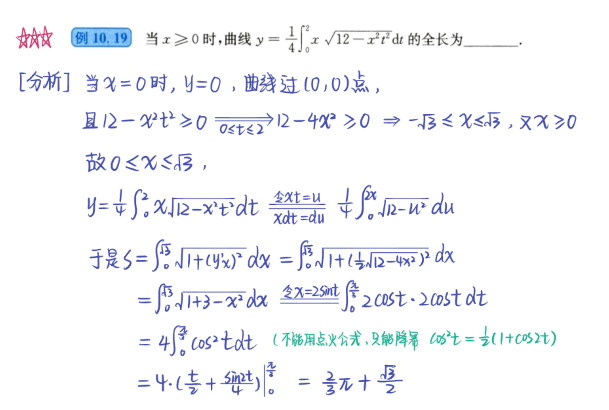 ☆☆☆ 例 10.19 当 x ≥ 0 时,曲线 y = \frac{1}{4}\int_0^2 x\sqrt{12-x^2t^2}dt 的全长为______.
[分析] 当 x=0 时, y=0 , 曲线过 (0,0) 点,
且 12-x²t² ≥ 0 \xRightarrow{0≤t≤2} 12-4x² ≥ 0 ⇒ -√3 ≤ x ≤ √3 , 又 x ≥ 0
故 0 ≤ x ≤ √3 ,
y = \frac{1}{4}\int_0^2 x\sqrt{12-x²t²}dt \xlongequal[xdt=du]{令xt=u} \frac{1}{4}\int_0^{2x}\sqrt{12-u²}du
于是 S = \int_0^{√3}\sqrt{1+(y'_x)²}dx = \int_0^{√3}\sqrt{1+(\frac{1}{2}\sqrt{12-4x²})²}dx
= \int_0^{√3}\sqrt{1+3-x²}dx \xlongequal{令x=2sint} \int_0^{\frac{π}{3}} 2cost·2cost dt
= 4\int_0^{\frac{π}{3}} cos²t dt (不能用点火公式,只能降幂 cos²t = \frac{1}{2}(1+cos2t)
= 4·(\frac{t}{2}+\frac{sin2t}{4})|_0^{\frac{π}{3}} = \frac{2}{3}π + \frac{√3}{2}